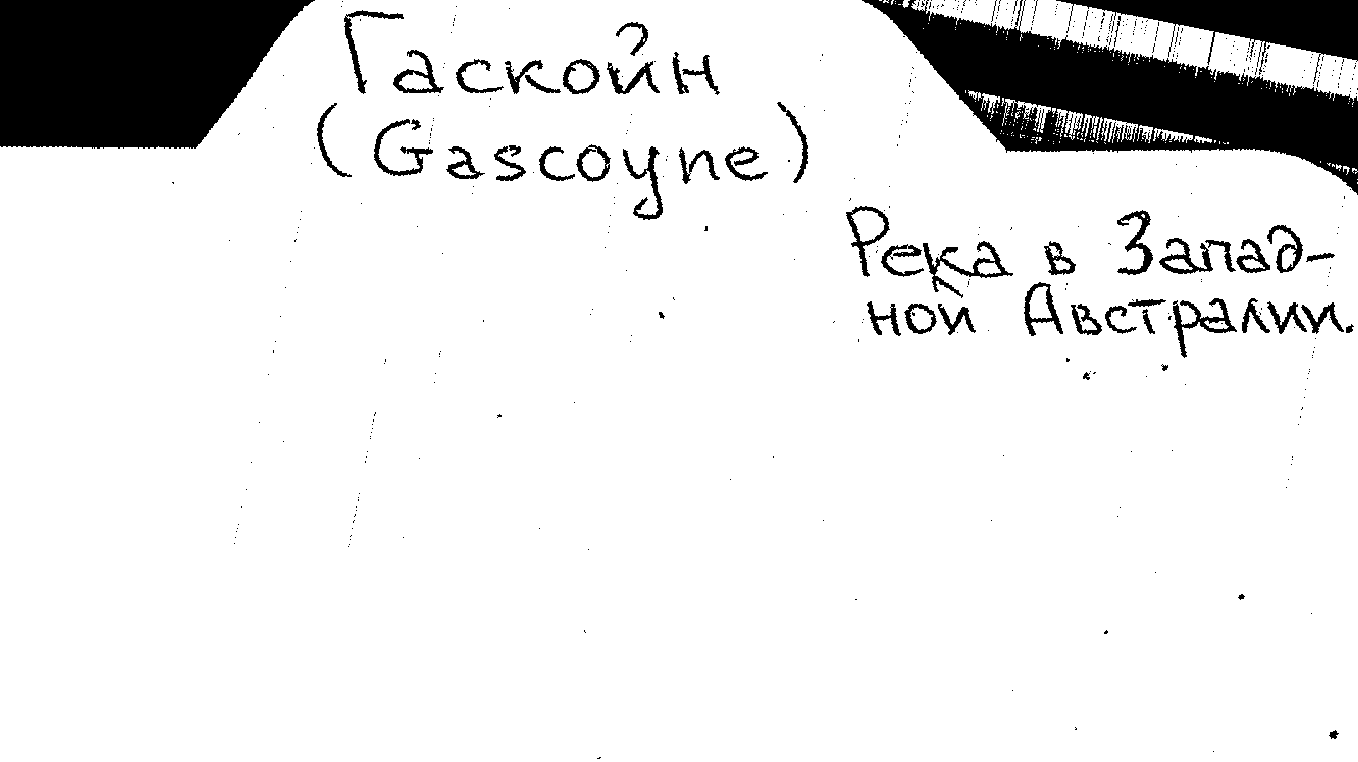 Гаскойн
(Gascoyne)
Река в Запад-
ной Австралии.